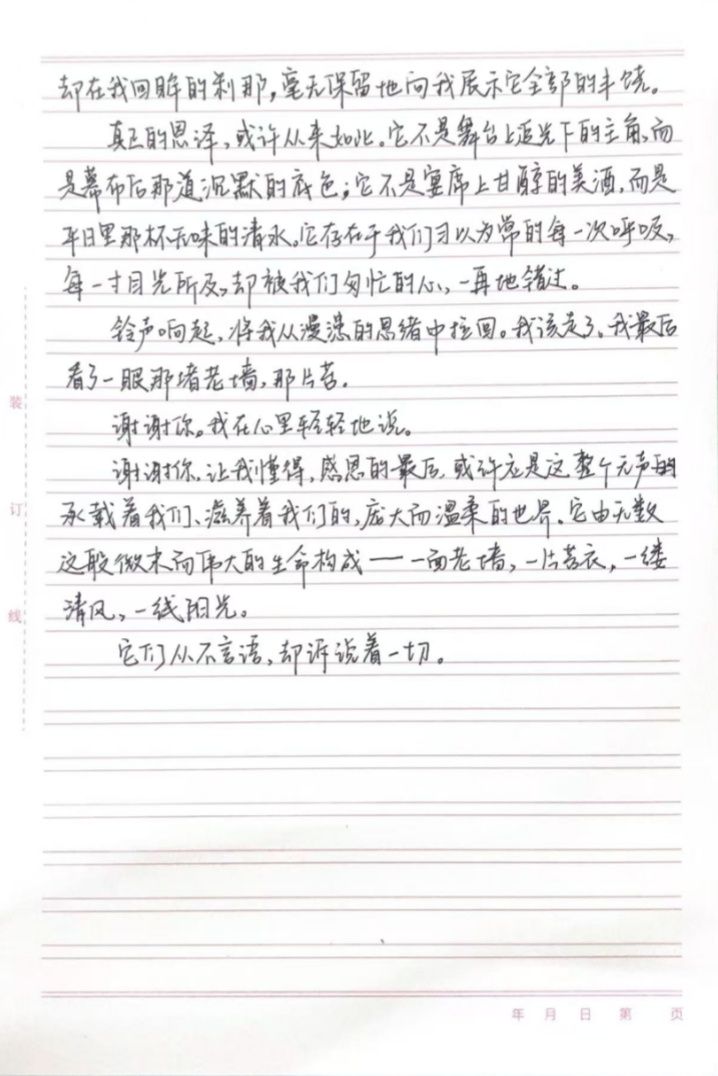 却在我回眸的刹那,毫无保留地向我展示它全部的丰饶。
真正的恩泽,或许从来如此。它不是舞台上追光下的主角,而
是幕布后那道沉默的底色;它不是宴席上甘醇的美酒,而是
平日里那杯无味的清水。它存在于我们习以为常的每一次呼吸,
每一寸目光所及,却被我们匆忙的心,一再地错过。
铃声响起,将我从漫漶的思绪中拉回。我该走了。我最后
看了一眼那堵老墙,那片苔.
谢谢你。我在心里轻轻地说。
谢谢你,让我懂得,感恩的最后,或许应是这整个无声的
承载着我们、滋养着我们的,庞大而温柔的世界。它由无数
这般微末而伟大的生命构成——一面老墙,一片苔衣,一缕
清风,一线阳光。
它们从不言语,却诉说着一切。
装
订
线
年 月 日 第 页